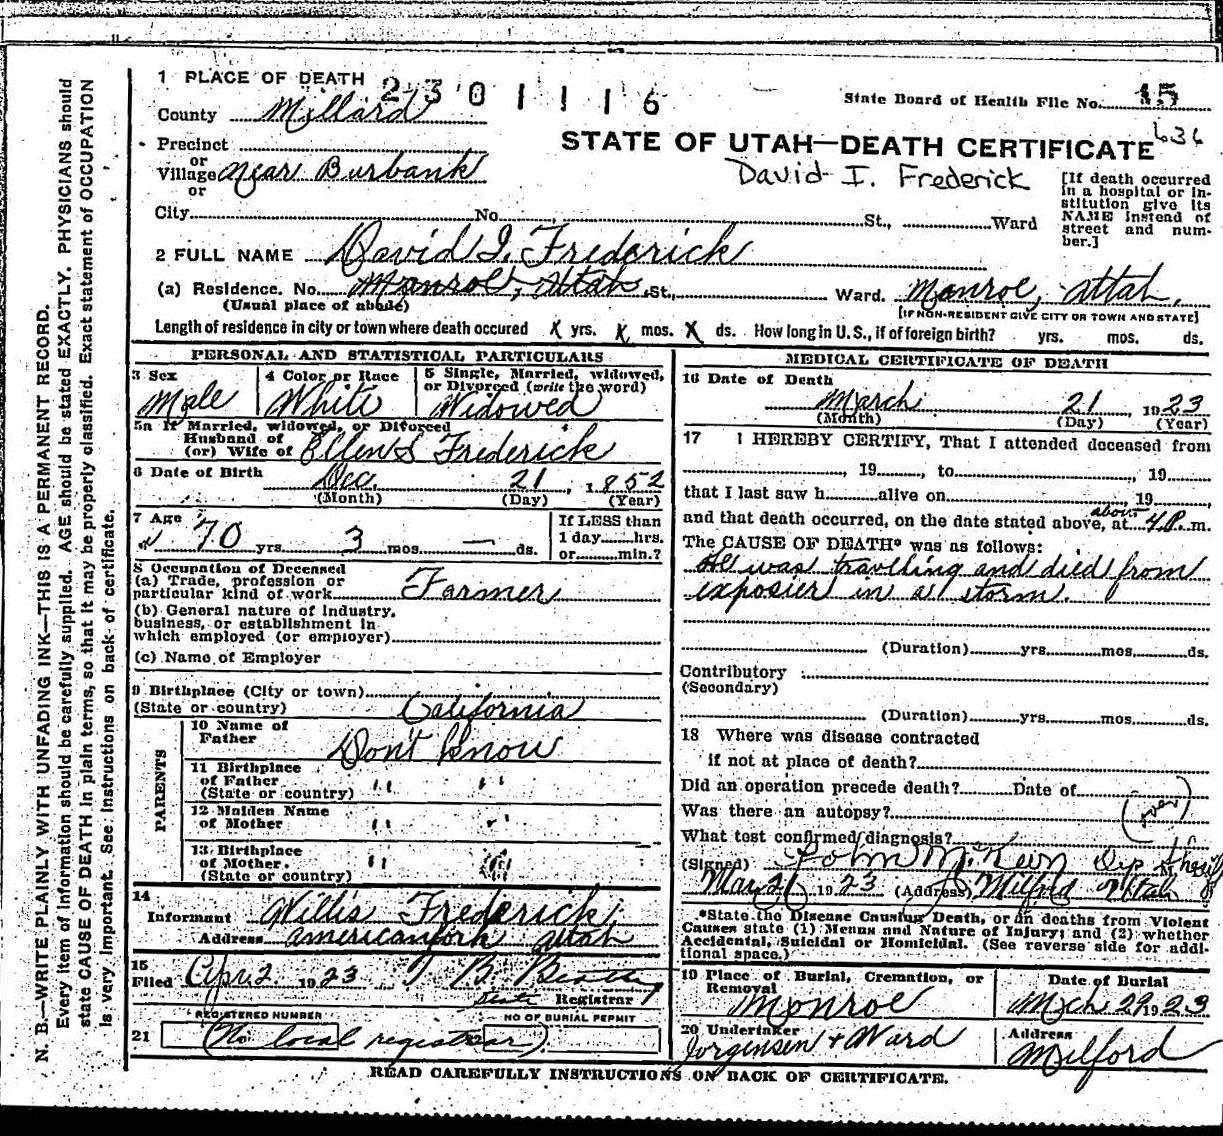 1 PLACE OF DEATH 2301116
State Board of Health File No. 15
County Millard
636
Precinct
STATE OF UTAH—DEATH CERTIFICATE
or
Village near Burbank
or
David I. Frederick
[If death occurred
in a hospital or in-
stitution give its
NAME instead of
street and num-
ber.]
City No. St., Ward
2 FULL NAME David I. Frederick
(a) Residence. No. Monroe, Utah St., Ward. Monroe, Utah.
(Usual place of abode) [IF NON-RESIDENT GIVE CITY OR TOWN AND STATE]
Length of residence in city or town where death occured X yrs. X mos. X ds. How long in U.S., if of foreign birth? yrs. mos. ds.
PERSONAL AND STATISTICAL PARTICULARS
3 Sex 4 Color or Race 5 Single, Married, widowed,
or Divorced (write the word)
Male White Widowed
5a If Married, widowed, or Divorced
Husband of
(or) Wife of Ellen S Frederick
6 Date of Birth Dec. 21, 1852
(Month) (Day) (Year)
7 Age 70 yrs. 3 mos. — ds.
If LESS than
1 day hrs.
or min.?
8 Occupation of Deceased
(a) Trade, profession or
particular kind of work Farmer
(b) General nature of Industry.
business, or establishment in
which employed (or employer)
(c) Name of Employer
9 Birthplace (City or town)
(State or country) California
PARENTS
10 Name of
Father Don't know
11 Birthplace
of Father " "
(State or country)
12 Maiden Name
of Mother " "
13 Birthplace
of Mother. " "
(State or country)
14
Informant Willis Frederick
Address americanfork Utah
15
Filed Apr. 2 1923
Registrar
REGISTERED NUMBER NO OF BURIAL PERMIT
21 (No local registrar).
MEDICAL CERTIFICATE OF DEATH
16 Date of Death
March 21, 1923
(Month) (Day) (Year)
17 I HEREBY CERTIFY, That I attended deceased from
, 19 , to , 19
that I last saw h alive on , 19
about
and that death occurred, on the date stated above, at 4 P. m.
The CAUSE OF DEATH* was as follows:
He was traveling and died from
exposier in a storm.
(Duration) yrs. mos. ds.
Contributory
(Secondary)
(Duration) yrs. mos. ds.
18 Where was disease contracted
if not at place of death?
Did an operation precede death? Date of
Was there an autopsy? (over)
What test confirmed diagnosis?
(Signed) John McKeon Dep Sheriff
Mar 26 1923 (Address) Milford Utah
*State the Disease Causing Death, or in deaths from Violent
Causes state (1) Means and Nature of Injury; and (2) whether
Accidental, Suicidal or Homicidal. (See reverse side for addi-
tional space.)
19 Place of Burial, Cremation, or
Removal
Monroe
Date of Burial
Mch 29 1923
20 Undertaker
Jorgensen + Ward
Address
Milford
READ CAREFULLY INSTRUCTIONS ON BACK OF CERTIFICATE.
N. B.—WRITE PLAINLY WITH UNFADING INK—THIS IS A PERMANENT RECORD.
Every item of information should be carefully supplied. AGE should be stated EXACTLY. PHYSICIANS should
state CAUSE OF DEATH in plain terms, so that it may be properly classified. Exact statement of OCCUPATION
is very important. See instructions on back of certificate.